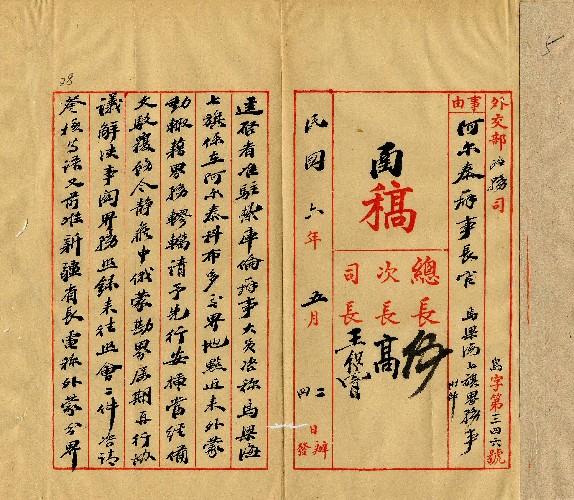 外交部政務司
烏字第三四六號
事由
阿尔泰辦事長官
烏梁海七旗界務事
附件
函稿
總長
次長 高
司長 王
民國六年五月
二
四
日
辦
發
逕啓者准駐紥庫倫辦事大員咨称烏梁海
七旗係在阿尔泰科布多分界地點近來外蒙
動輒藉界務轇轕請予先行安插當經備
文駁復飭令靜候中俄蒙勘界屆期再行協
議解決事関界務照錄来往照會二件咨請
核等語又前准新疆省長電称外蒙分界
28
5